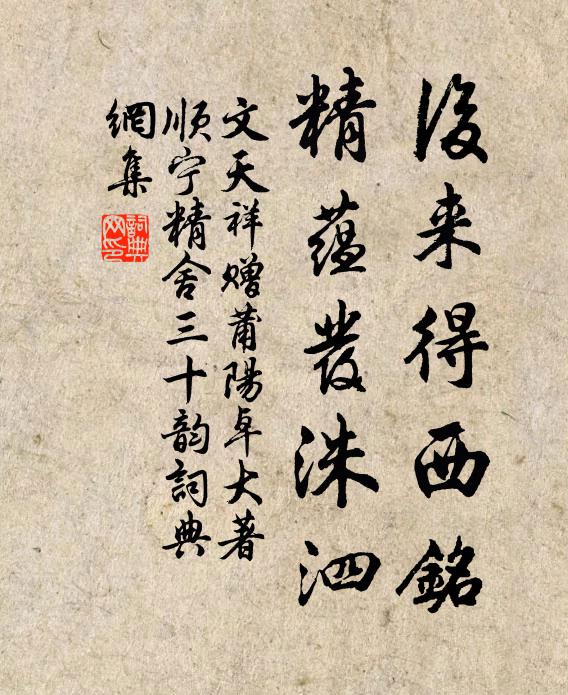 後来得西銘
精蕴發洙泗
文天祥赠莆陽卓大著
順宁精舍三十韵詞典
網集
詞典網印